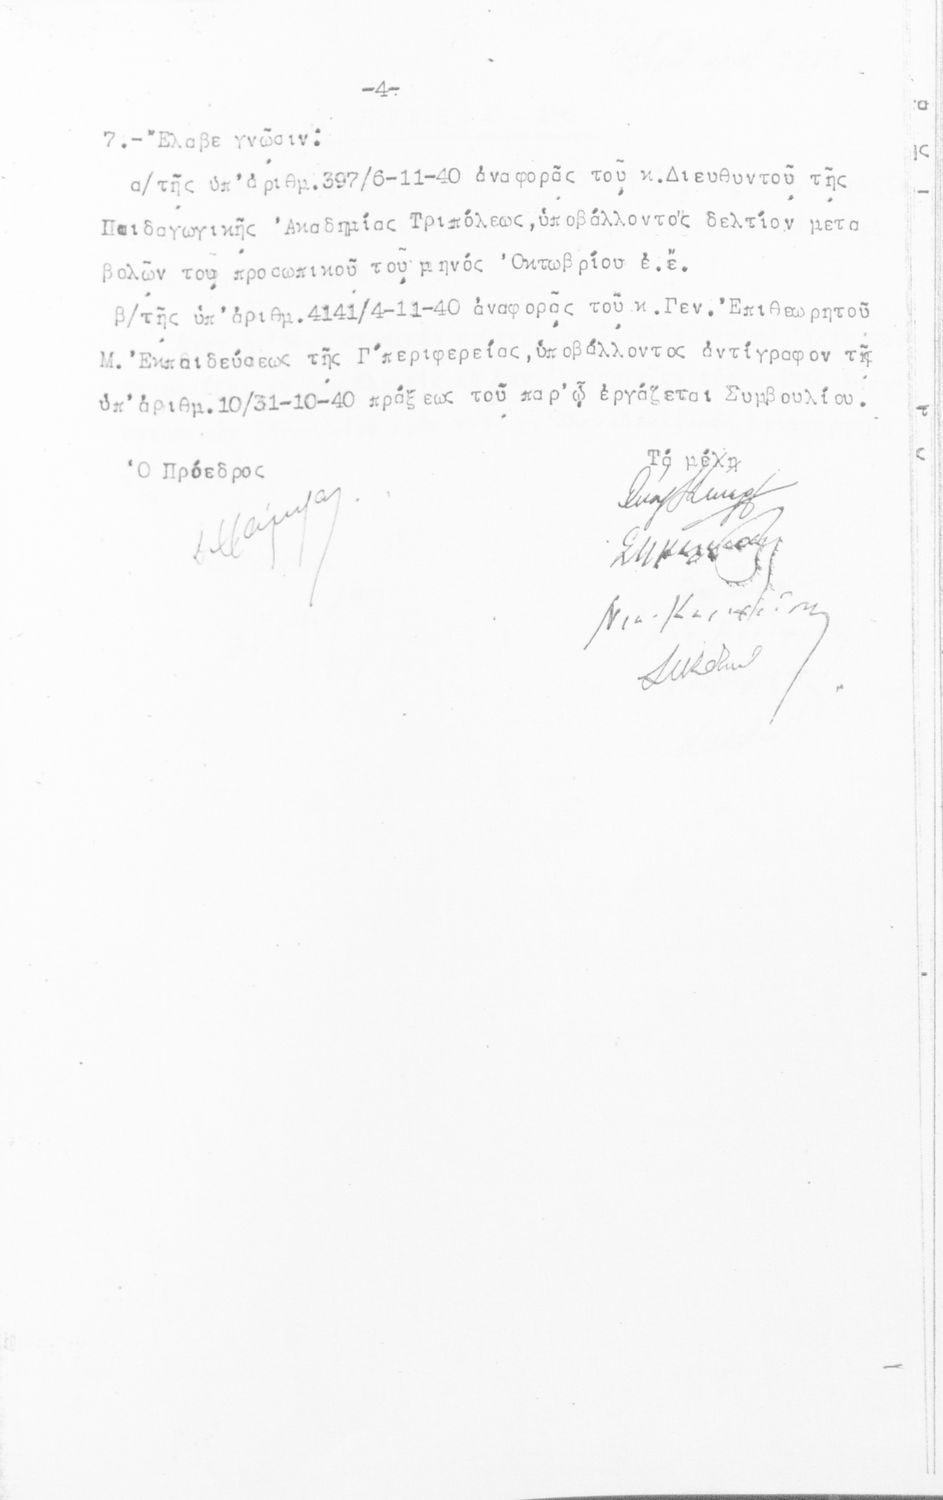 -4-
7.-Ἔλαβε γνῶσιν:
α/τῆς ὑπ'ἀριθμ.397/6-11-40 ἀναφορᾶς τοῦ κ.Διευθυντοῦ τῆς
Παιδαγωγικῆς Ἀκαδημίας Τριπόλεως,ὑποβάλλοντος δελτίον μετα
βολῶν τοῦ προσωπικοῦ τοῦ μηνός Ὀκτωβρίου ἐ.ἔ.
β/τῆς ὑπ'ἀριθμ.4141/4-11-40 ἀναφορᾶς τοῦ κ.Γεν.Ἐπιθεωρητοῦ
Μ.Ἐκπαιδεύσεως τῆς Γ'περιφερείας,ὑποβάλλοντος ἀντίγραφον τῆς
ὑπ'ἀριθμ.10/31-10-40 πράξεως τοῦ παρ'ᾧ ἐργάζεται Συμβουλίου.
Ὁ Πρόεδρος
Τά μέλη